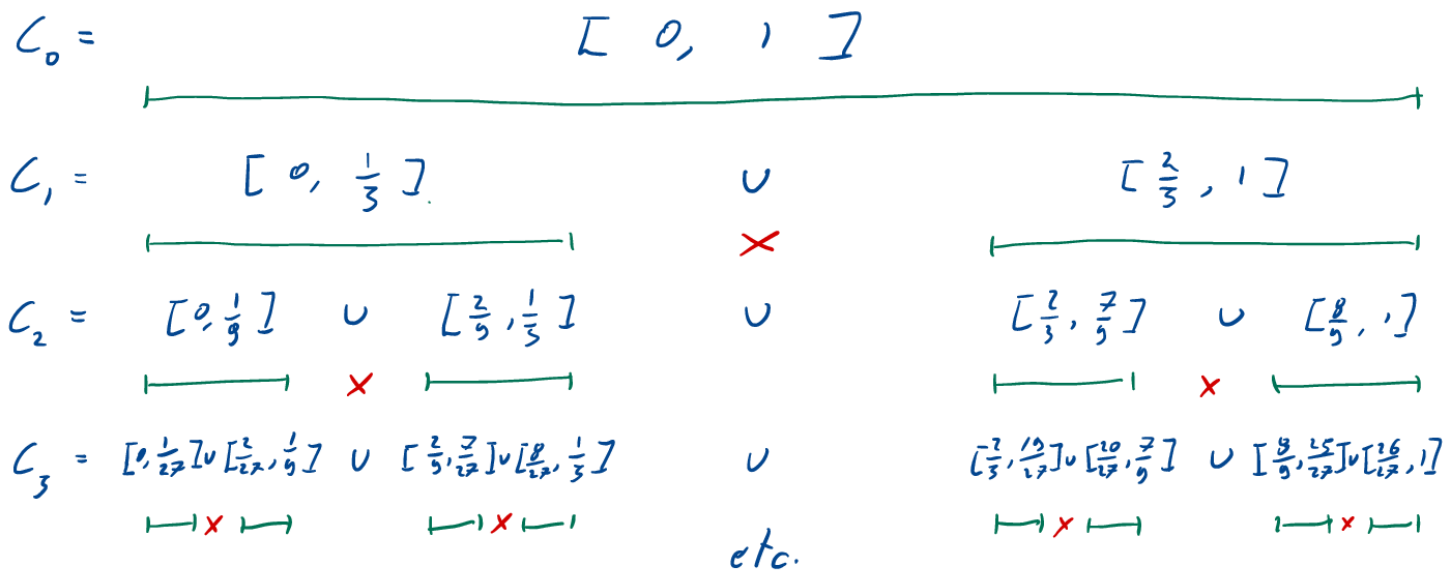 C₀ = [ 0, 1 ]
C₁ = [ 0, 1/3 ] ∪ [ 2/3, 1 ]
C₂ = [0, 1/9] ∪ [2/9, 1/3] ∪ [2/3, 7/9] ∪ [8/9, 1]
C₃ = [0, 1/27] ∪ [2/27, 1/9] ∪ [2/9, 7/27] ∪ [8/27, 1/3] ∪ [2/3, 19/27] ∪ [20/27, 7/9] ∪ [8/9, 25/27] ∪ [26/27, 1]
etc.